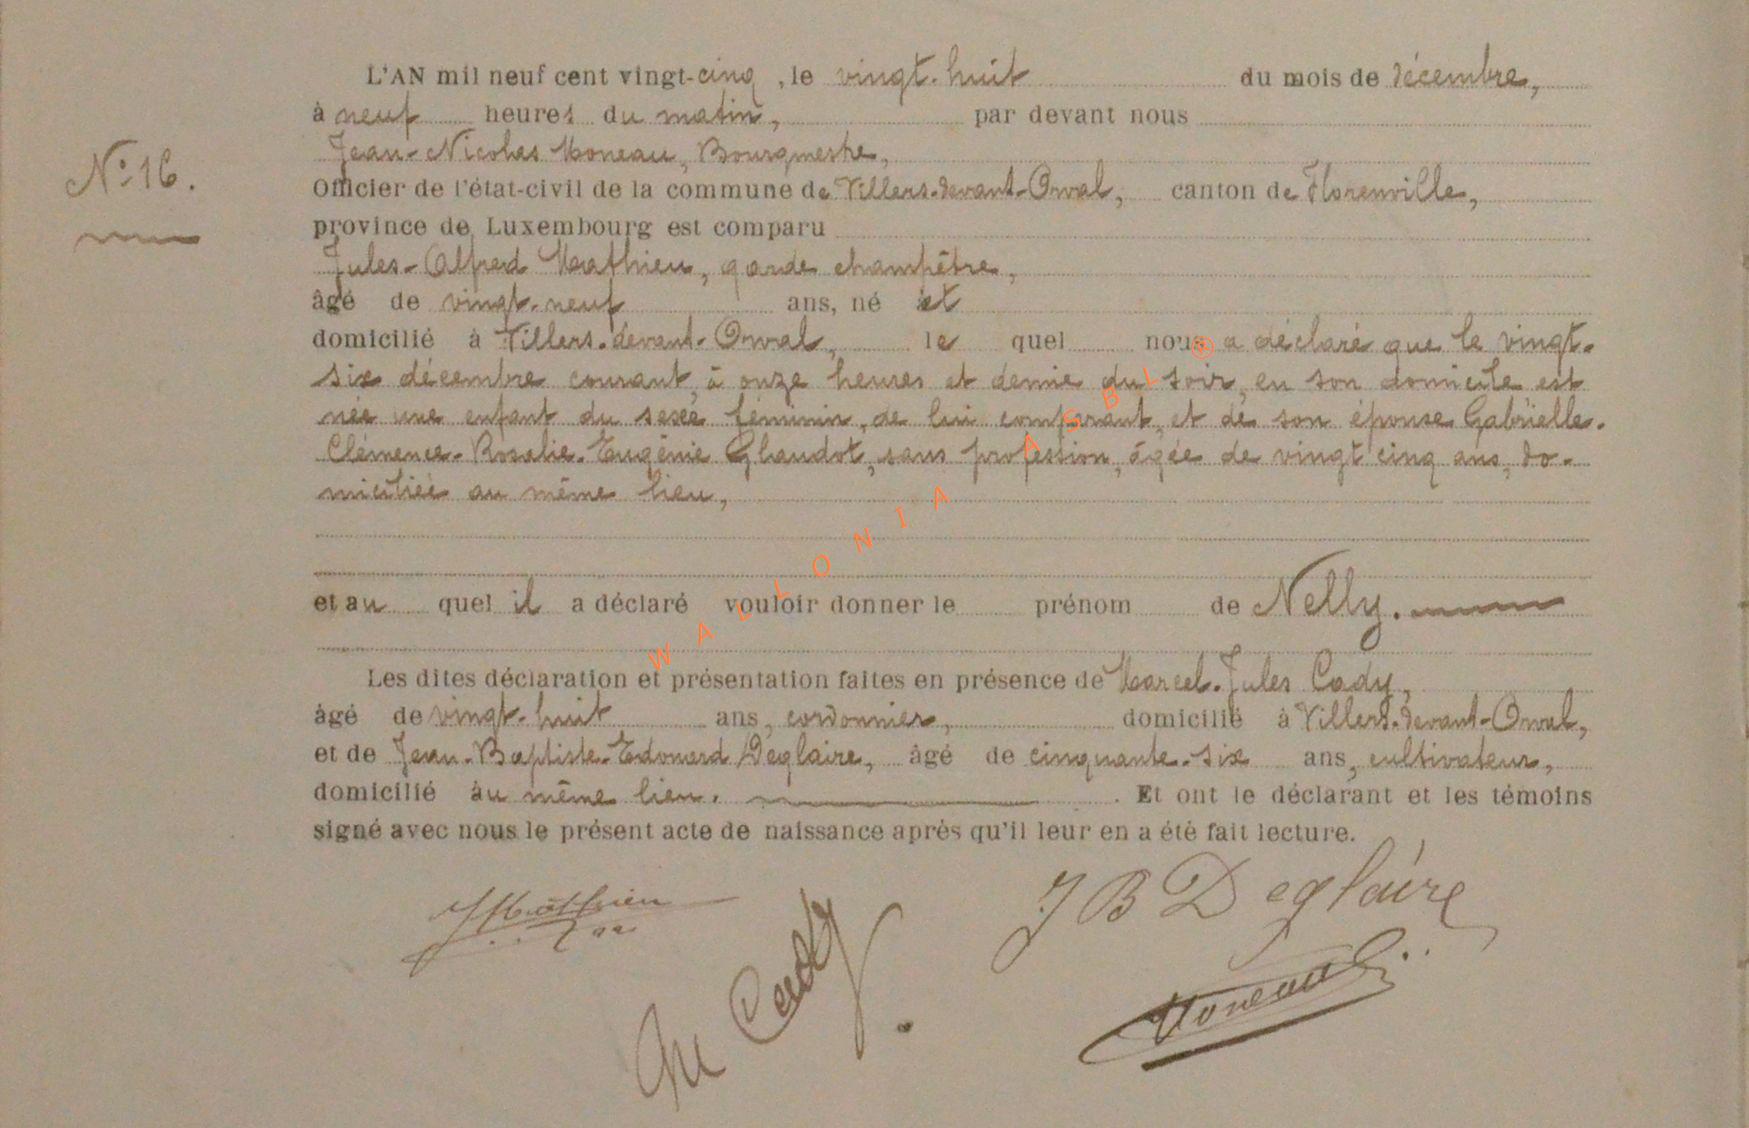 L'AN mil neuf cent vingt-cinq, le vingt-huit du mois de décembre,
à neuf heures du matin, par devant nous
Jean-Nicolas Moneau, Bourgmestre,
N° 16.
Officier de l'état-civil de la commune de Villers-devant-Orval, canton de Florenville,
province de Luxembourg est comparu
Jules-Alfred Mathieu, garde champêtre,
âgé de vingt-neuf ans, né et
domicilié à Villers-devant-Orval, le quel nous a déclaré que le vingt-
six décembre courant, à onze heures et demie du soir, en son domicile est
née une enfant du sexe féminin, de lui comparant, et de son épouse Gabrielle-
Clémence-Rosalie-Eugénie Ghaudot, sans profession, âgée de vingt cinq ans, do-
miciliée au même lieu,
et au quel il a déclaré vouloir donner le prénom de Nelly.
Les dites déclaration et présentation faites en présence de Marcel-Jules Cady,
âgé de vingt-huit ans, cordonnier, domicilié à Villers-devant-Orval,
et de Jean-Baptiste-Edouard Deglaire, âgé de cinquante-six ans, cultivateur,
domicilié au même lieu. Et ont le déclarant et les témoins
signé avec nous le présent acte de naissance après qu'il leur en a été fait lecture.
JMathieu
J B Deglaire
M Cady
Moneau
WALLONIA ASBL ®